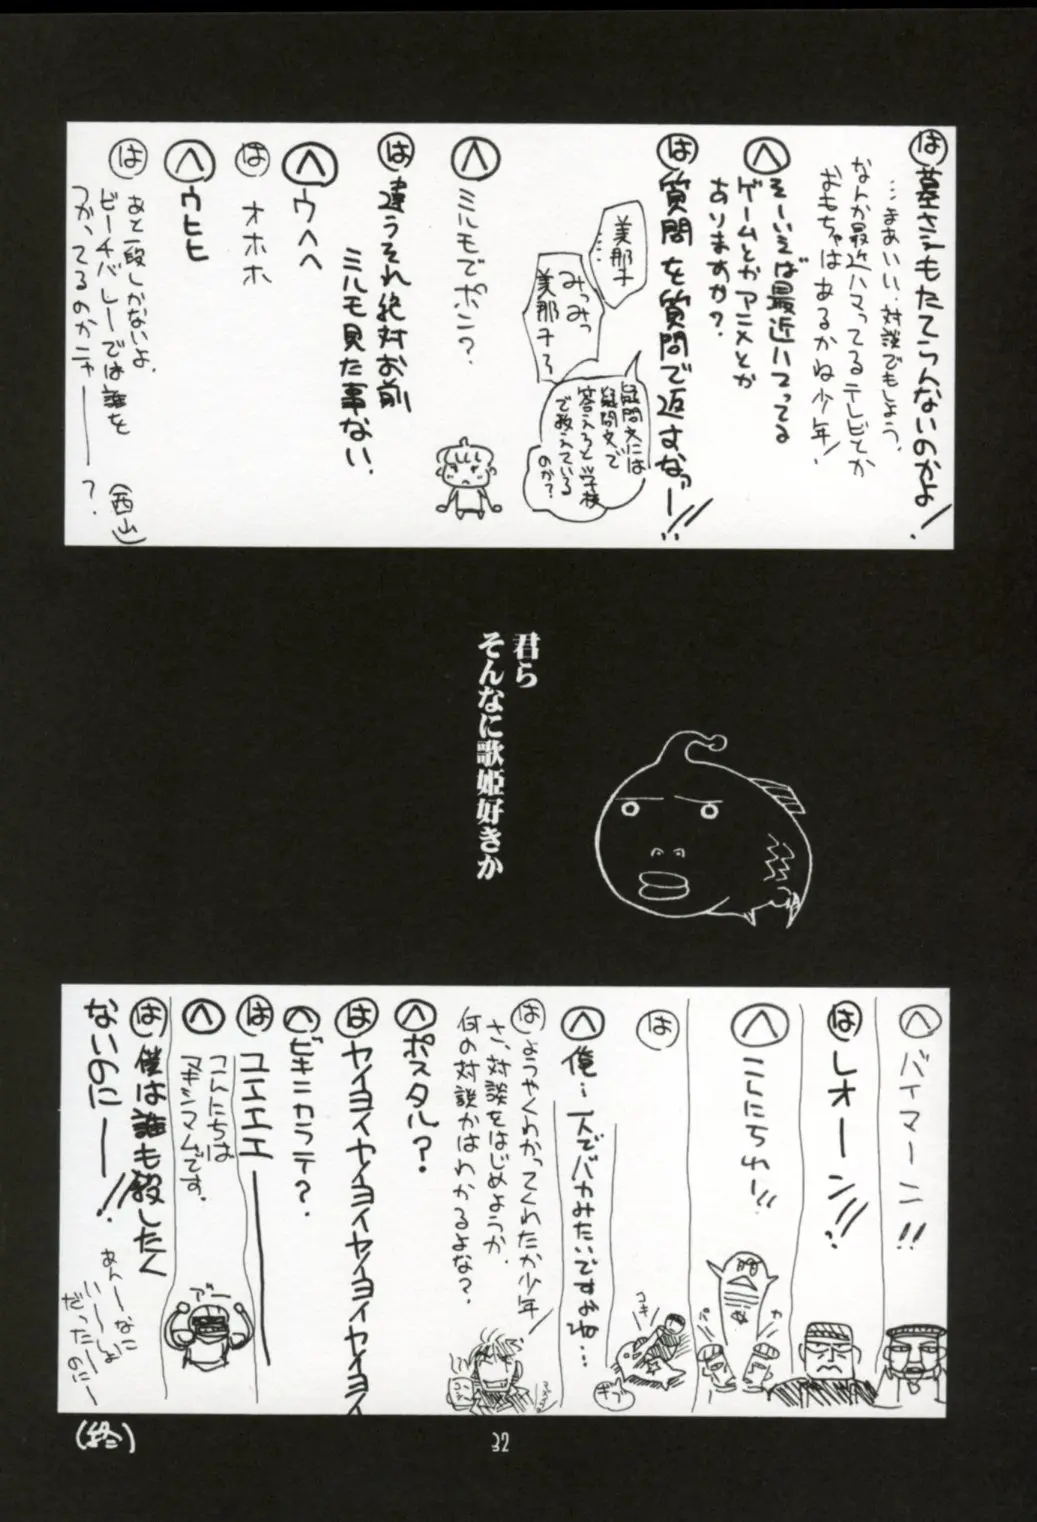 は 墓さえもたてらんないのかよ!
…まあいい、対談でもしよう、
なんか最近ハマってるテレビとか
おもちゃはあるかね少年!
へ そーいえば最近ハマってる
ゲームとかアニメとか
ありますか?
は 質問を質問で返すなーッ!!
美那子…
みっみっ
美那子ぅ
疑問文には
疑問文で
答えろと学校
で教えている
のか?
へ ミルモでポン?
は 違うそれ絶対お前
ミルモ見た事ない.
へ ウヘヘ
は オホホ
へ ウヒヒ
は あと一段しかないよ.
ビーチバレーでは誰を
つかってるのかニャーー?
(西山)
君ら
そんなに歌姫好きか
へ バイマーン!!
は レオーン!!
へ こんにちわー!!
パ
カ
は
コキ
ギブ
へ 俺…一人でバカみたいですよね…
は ようやくわかってくれたか少年!
さ、対談をはじめようか.
何の対談かはわかるよな?.
へ ポスタル?
は ヤイヨイヤイヨイヤイヨイヤイヨイ
へ ビキニカラテ?
は ユエエエーー
へ こんにちは
マキシマムです.
アー
は 僕は誰も殺したく
ないのにーー!!
あんーなに
いーーしょ
だったーのにー
(終)
32